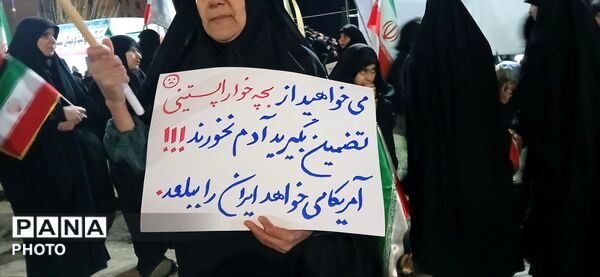 می‌خواهید از بچه خوار اپستینی
تضمین بگیرید آدم نخورند!!!
آمریکا می خواهد ایران را ببلعد.
PANA
PHOTO